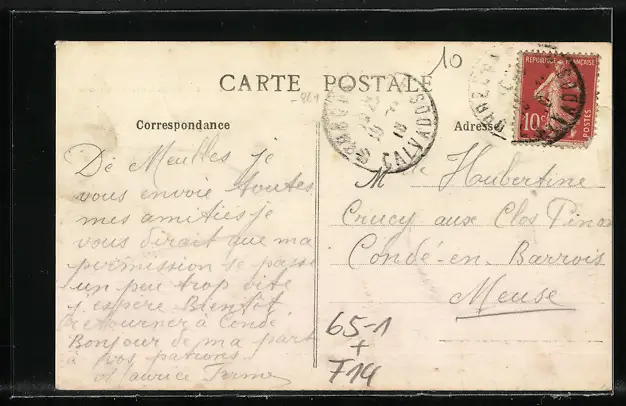 10
CARTE POSTALE
REPUBLIQUE FRANÇAISE
10c
POSTES
CALVADOS
Correspondance
Adresse
De Meulles je
vous envoie toutes
mes amitiés je
vous dirait que ma
permission se passe
un peu trop vite
j'espère Bientôt
retourner à Condé
Bonjour de ma part
à vos patrons
Maurice Ferme
Mlle Hubertine
Crucy aux Clos Pinon
Condé-en-Barrois
Meuse
65-1
+
T14